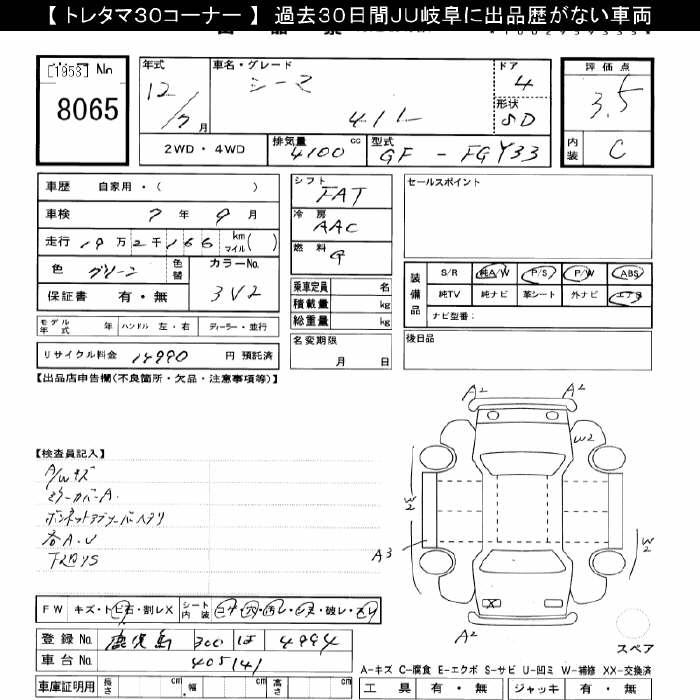 【 トレタマ３０コーナー 】 過去３０日間ＪＵ岐阜に出品歴がない車両
[1953] No. 年式 車名・グレード ドア 評価点
8065 12/7月 シーマ 4 3.5
41L 形状 SD
2WD・4WD 排気量 4100cc 型式 GF-FGY33 内装 C
車歴 自家用・( ) シフト FAT セールスポイント
車検 7年9月 冷房 AAC
走行 19万2千166 km マイル( ) 燃料 G
色 グリーン 色替 カラーNo. 3V2
装備品 S/R 純A/W P/S P/W ABS
保証書 有・無 乗車定員 名 純TV 純ナビ 革シート 外ナビ エアB
積載量 kg ナビ型番:
モデル年式 年 ハンドル 左・右 ディーラー・並行 総重量 kg
リサイクル料金 14990 円 預託済 名変期限 月 日 後日品
【出品店申告欄(不良箇所・欠品・注意事項等)】
A2 A2
W2
【検査員記入】
A/Wキズ
W2
ミラーカバーA.
各A.U
W2
下回りS
A3
X
A2
FW キズ・トビ石・割レX シート内装 コゲ・穴・汚レ・シミ・破レ・スリ
スペア
登録No. 鹿児島 300 は 4994
車台No. 405141
A−キズ C−腐食 E−エクボ S−サビ U−凹ミ W−補修 XX−交換済
車庫証明用 長さ cm 幅 cm 高さ cm 工具 有・無 ジャッキ 有・無